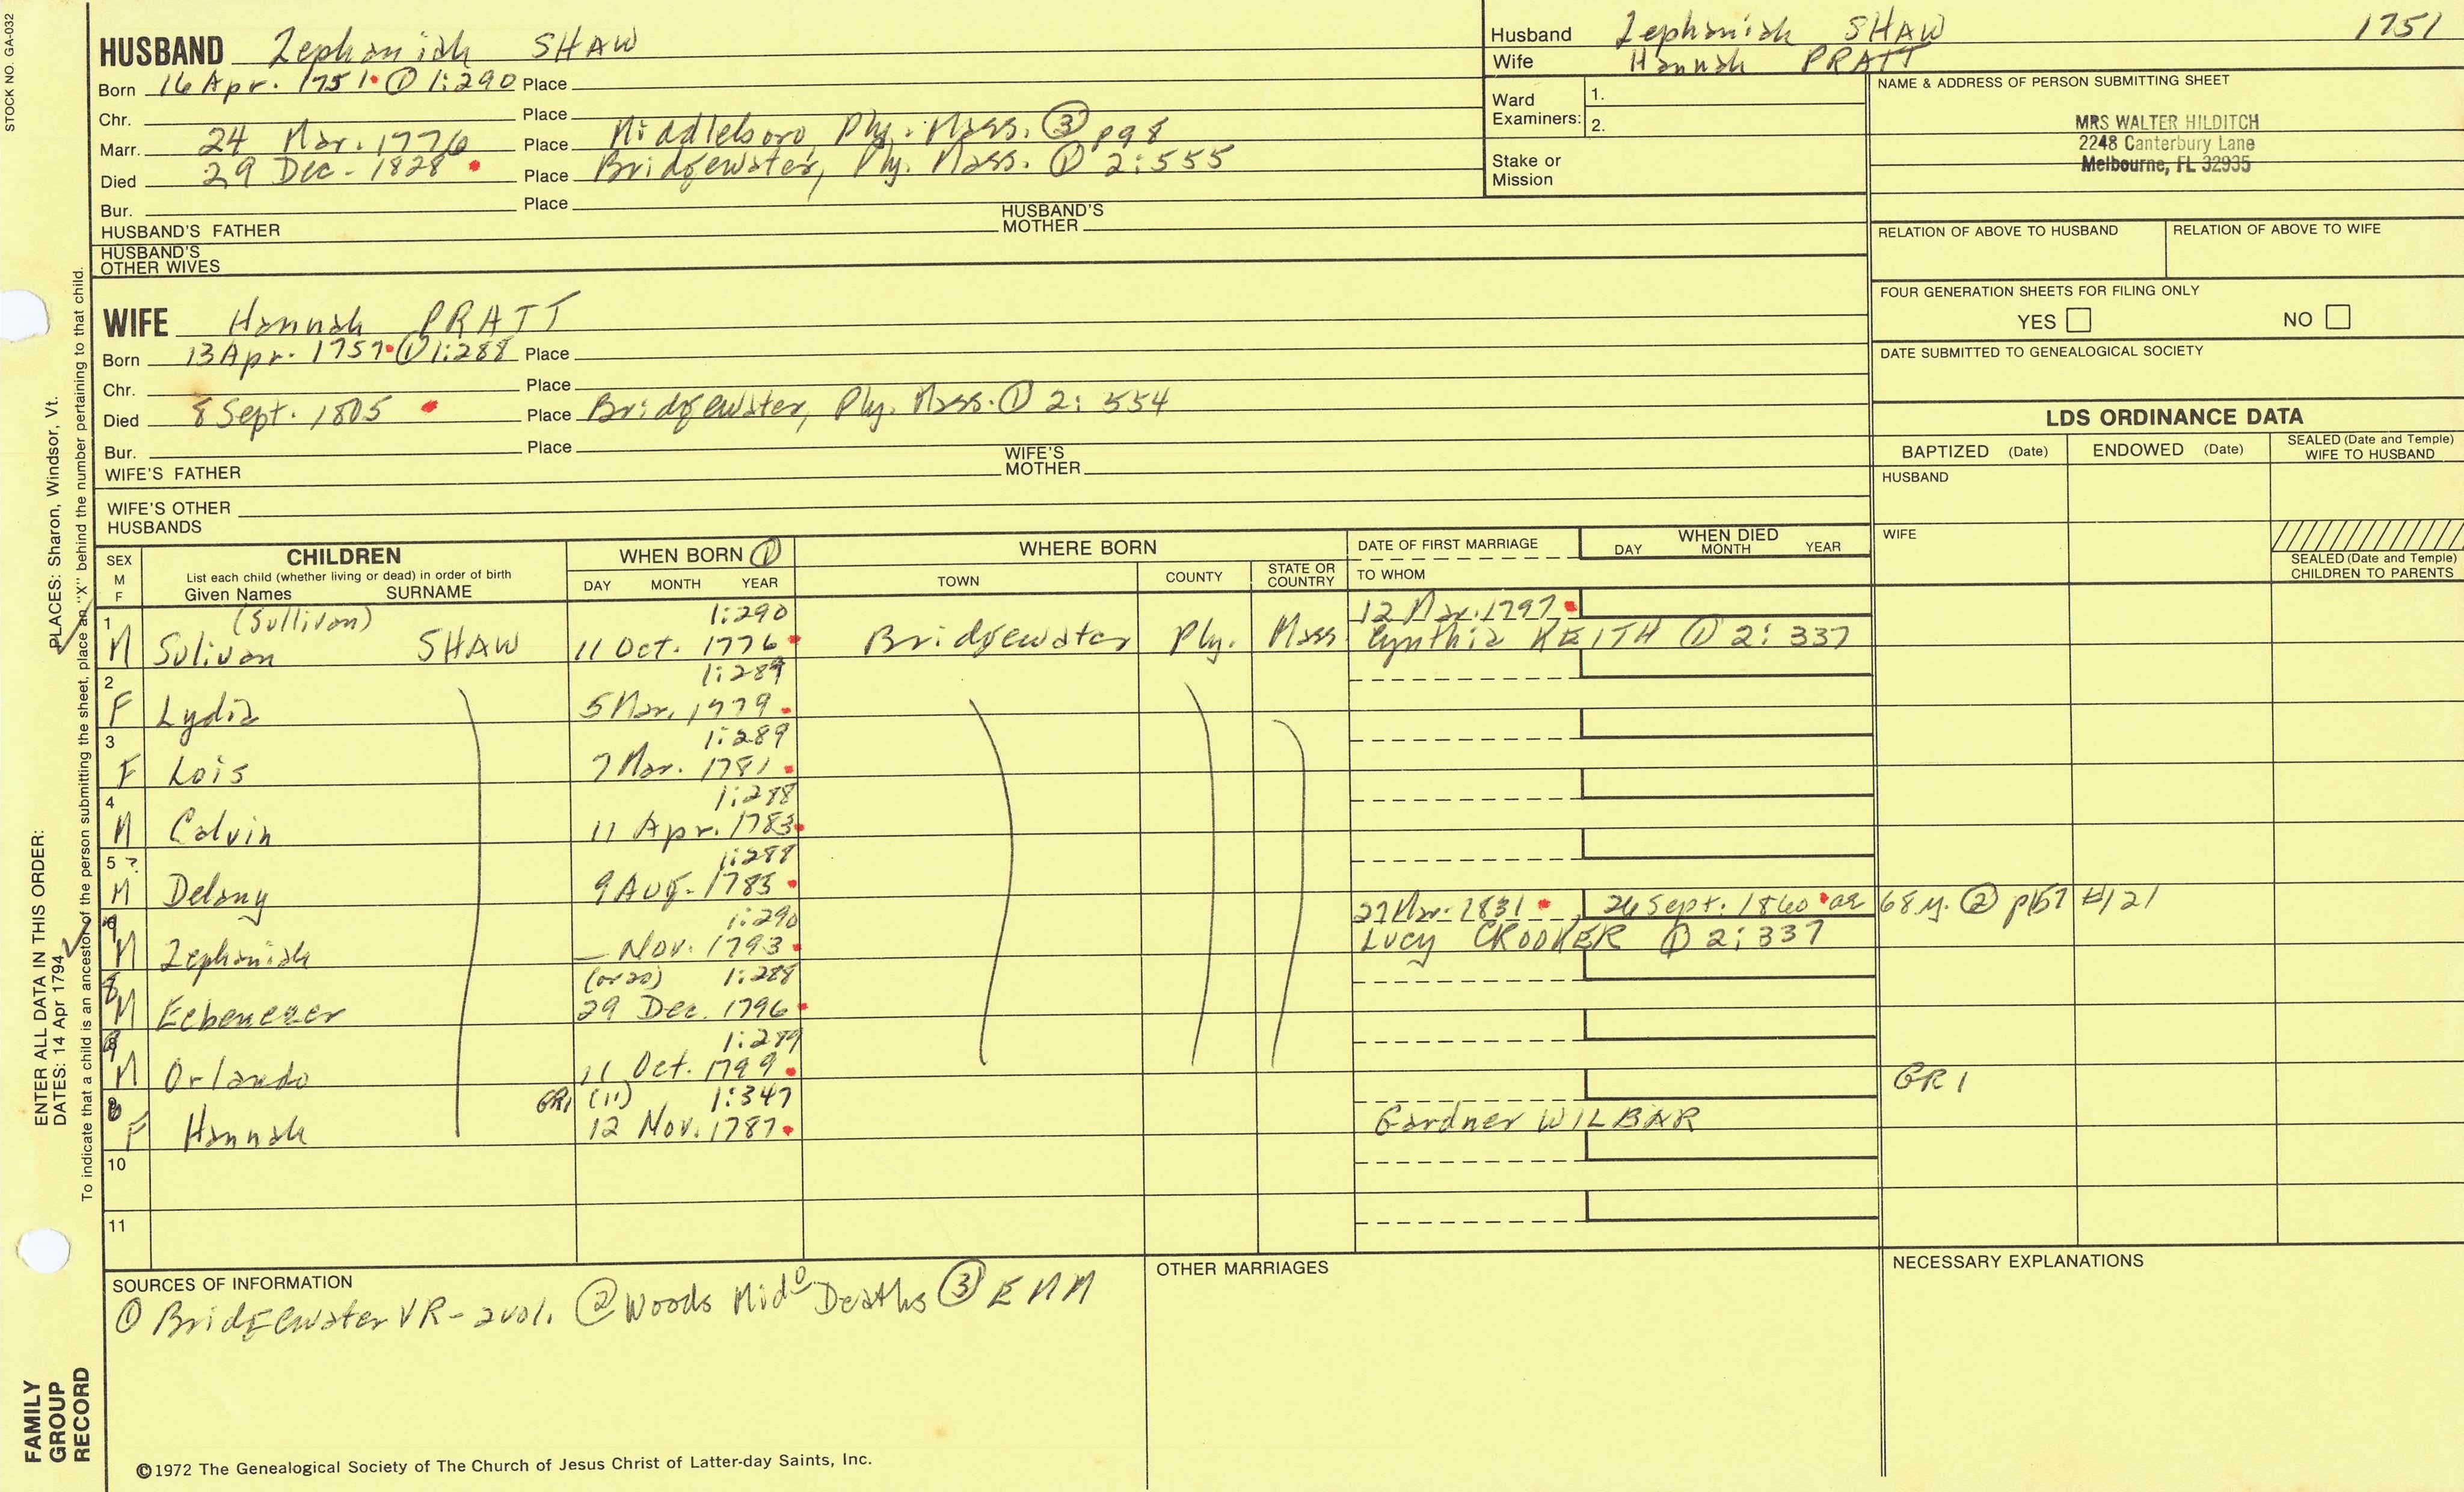 STOCK NO. GA-032
HUSBAND Zephaniah SHAW
Born 16 Apr. 1751 ① 1:290 Place
Chr. Place
Marr. 24 Mar. 1776 Place Middleboro, Ply. Mass. ③ pg 8
Died 29 Dec. 1828 Place Bridgewater, Ply. Mass. ① 2:555
Bur. Place
HUSBAND'S FATHER HUSBAND'S MOTHER
HUSBAND'S OTHER WIVES
Husband Zephaniah SHAW 1751
Wife Hannah PRATT
Ward Examiners: 1.
2.
Stake or Mission
NAME & ADDRESS OF PERSON SUBMITTING SHEET
MRS WALTER HILDITCH
2248 Canterbury Lane
Melbourne, FL 32935
RELATION OF ABOVE TO HUSBAND RELATION OF ABOVE TO WIFE
FOUR GENERATION SHEETS FOR FILING ONLY
YES NO
DATE SUBMITTED TO GENEALOGICAL SOCIETY
WIFE Hannah PRATT
Born 13 Apr. 1757 ① 1:288 Place
Chr. Place
Died 8 Sept. 1805 Place Bridgewater, Ply. Mass. ① 2:554
Bur. Place
WIFE'S FATHER WIFE'S MOTHER
WIFE'S OTHER HUSBANDS
LDS ORDINANCE DATA
BAPTIZED (Date) ENDOWED (Date) SEALED (Date and Temple) WIFE TO HUSBAND
HUSBAND
WIFE
SEALED (Date and Temple) CHILDREN TO PARENTS
SEX M F
CHILDREN
List each child (whether living or dead) in order of birth
Given Names SURNAME
WHEN BORN ①
DAY MONTH YEAR
WHERE BORN
TOWN COUNTY STATE OR COUNTRY
DATE OF FIRST MARRIAGE
TO WHOM
WHEN DIED
DAY MONTH YEAR
1 (Sullivan) 1:290 12 Mar. 1797
M Sulivan SHAW 11 Oct. 1776 Bridgewater Ply. Mass Cynthia KEITH ① 2:337
2 1:289
F Lydia 5 Mar. 1779
3 1:289
F Lois 7 Mar. 1781
4 1:288
M Calvin 11 Apr. 1783
5 ? 1:288
M Delany 9 Aug. 1785
1:290 27 Mar. 1831 26 Sept. 1860 ae 68 y. ② p157 #121
M Zephaniah — Nov. 1793 Lucy CROOKER ① 2:337
8 (or 20) 1:288
M Eebenezer 29 Dec. 1796
9 1:289
M Orlando 11 Oct. 1799
GR1 (11) 1:347 GR1
F Hannah 12 Nov. 1787 Gardner WILBAR
10
11
SOURCES OF INFORMATION
① Bridgewater VR - 2 vol. ② Woods Midº Deaths ③ EMM
OTHER MARRIAGES
NECESSARY EXPLANATIONS
©1972 The Genealogical Society of The Church of Jesus Christ of Latter-day Saints, Inc.
FAMILY GROUP RECORD
ENTER ALL DATA IN THIS ORDER:
DATES: 14 Apr 1794
PLACES: Sharon, Windsor, Vt.
To indicate that a child is an ancestor of the person submitting the sheet, place an "X" behind the number pertaining to that child.